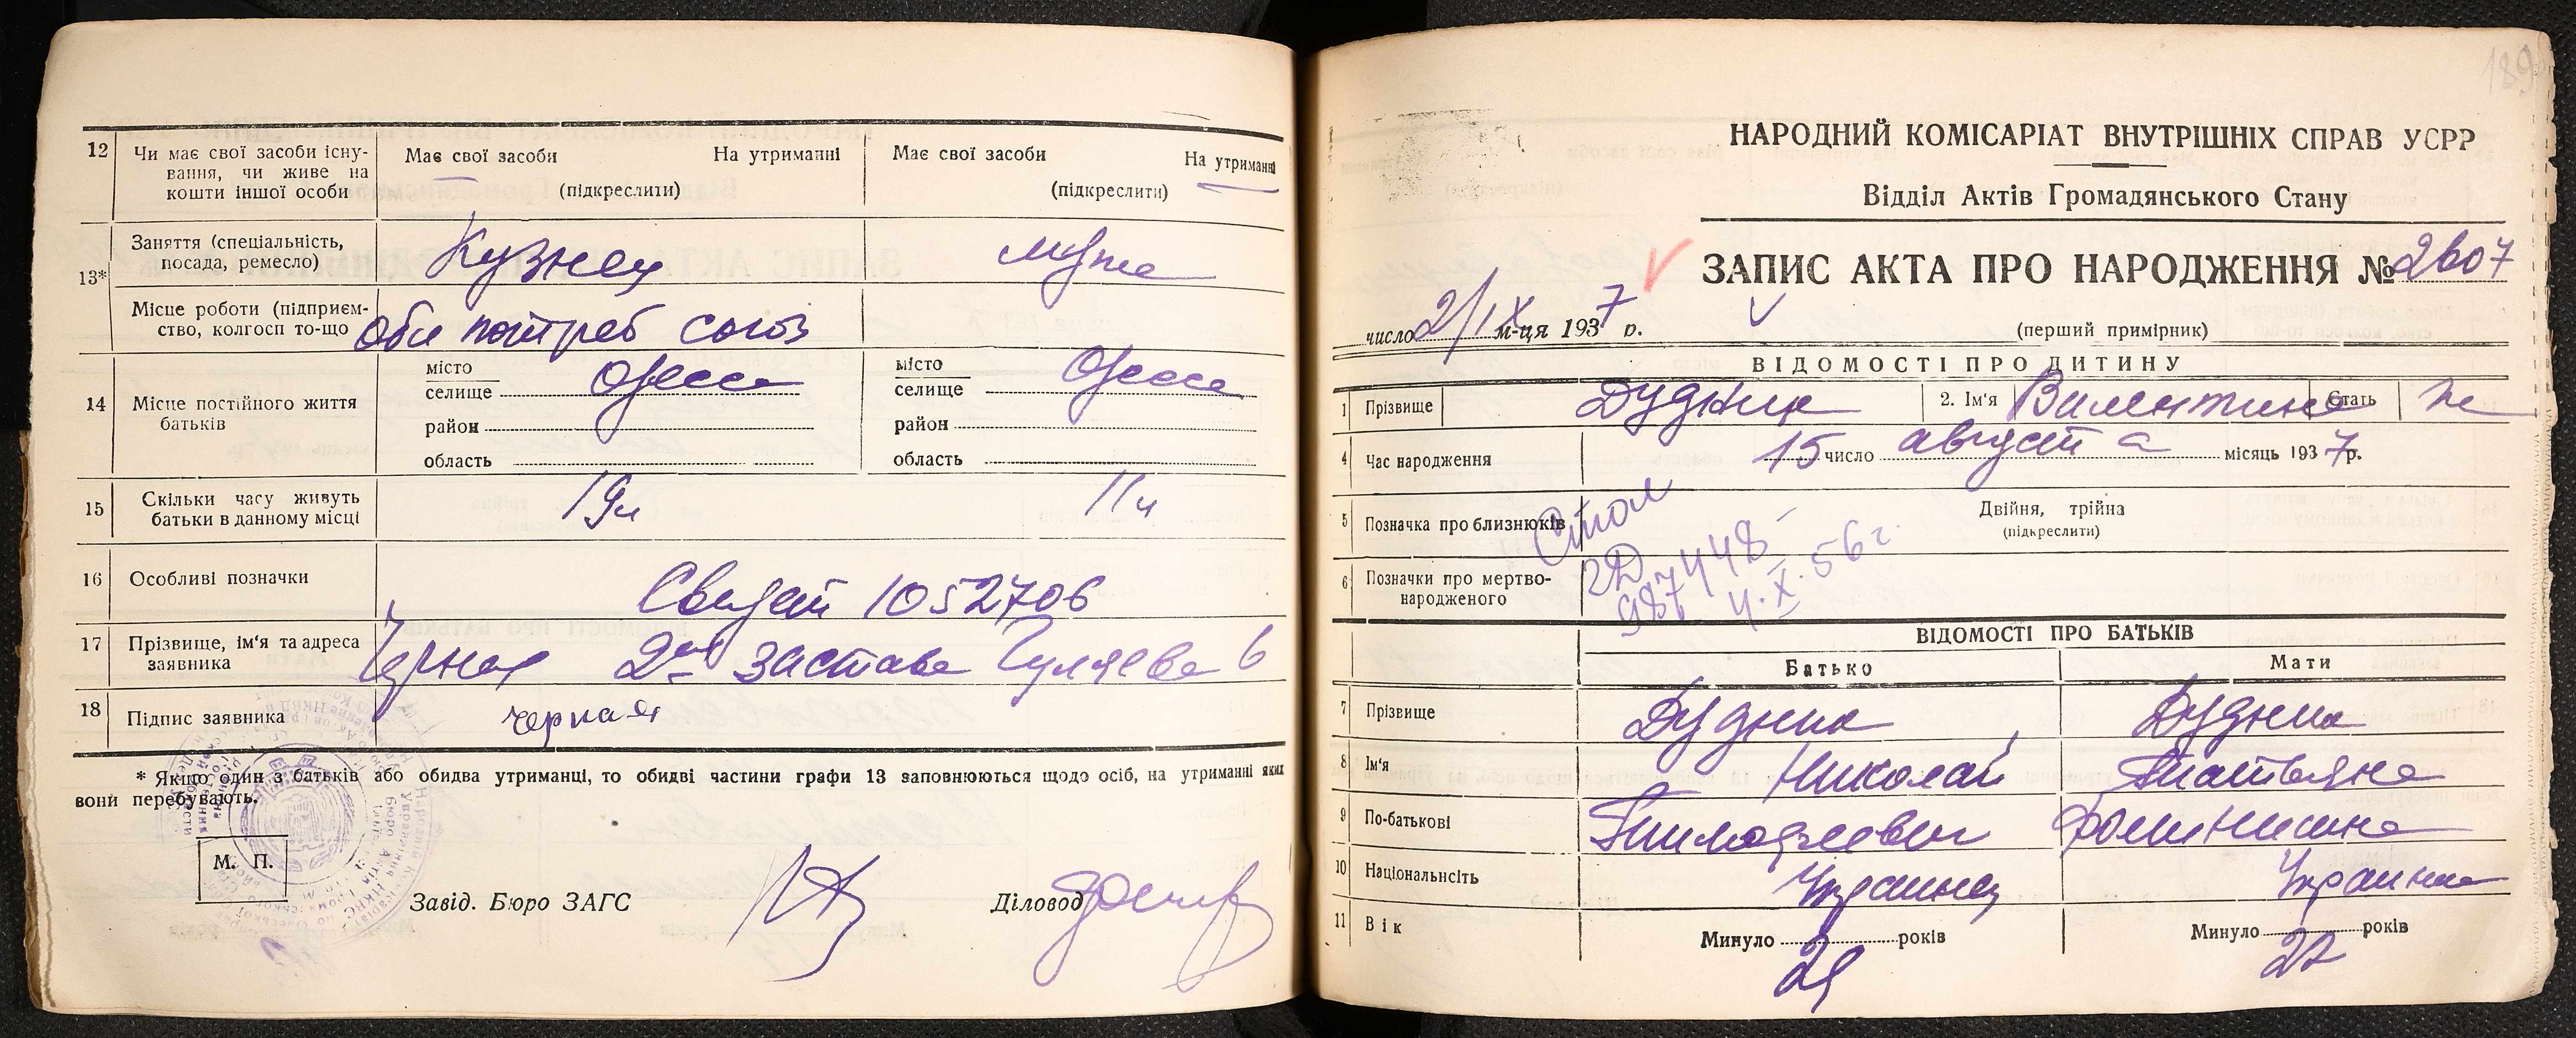 12 Чи має свої засоби існу-
вання, чи живе на
кошти іншої особи
Має свої засоби На утриманні
(підкреслити)
Має свої засоби На утриманні
(підкреслити)
13*
Заняття (спеціальність,
посада, ремесло)
Кузнец
мужа
Місце роботи (підприєм-
ство, колгосп то-що
потреб союз
14 Місце постійного життя
батьків
місто
селище Одесса
район
область
місто
селище Одесса
район
область
15 Скільки часу живуть
батьки в данному місці
19л
11л
16 Особливі позначки
Свидет 1052706
17 Прізвище, ім'я та адреса
заявника
Черная 2ая застава Гуляева 6
18 Підпис заявника
черная
* Якщо один з батьків або обидва утриманці, то обидві частини графи 13 заповнюються щодо осіб, на утриманні яких
вони перебувають.
М. П.
Завід. Бюро ЗАГС
Діловод
189
НАРОДНИЙ КОМІСАРІАТ ВНУТРІШНІХ СПРАВ УСРР
Відділ Актів Громадянського Стану
ЗАПИС АКТА ПРО НАРОДЖЕННЯ № 2607
число 2/IX м-ця 1937 р.
(перший примірник)
ВІДОМОСТІ ПРО ДИТИНУ
1 Прізвище Дудник 2. Ім'я Валентина Стать ж
4 Час народження 15 число августа місяць 1937 р.
5 Позначка про близнюків
Двійня, трійня
(підкреслити)
6 Позначки про мертво-
народженого
987448
4.X.56г
ВІДОМОСТІ ПРО БАТЬКІВ
Батько Мати
7 Прізвище Дудник Дудник
8 Ім'я Николай Татьяна
9 По-батькові Тимофеевич
10 Національнсіть Украинец Украинка
11 Вік
Минуло років
29
Минуло років
22